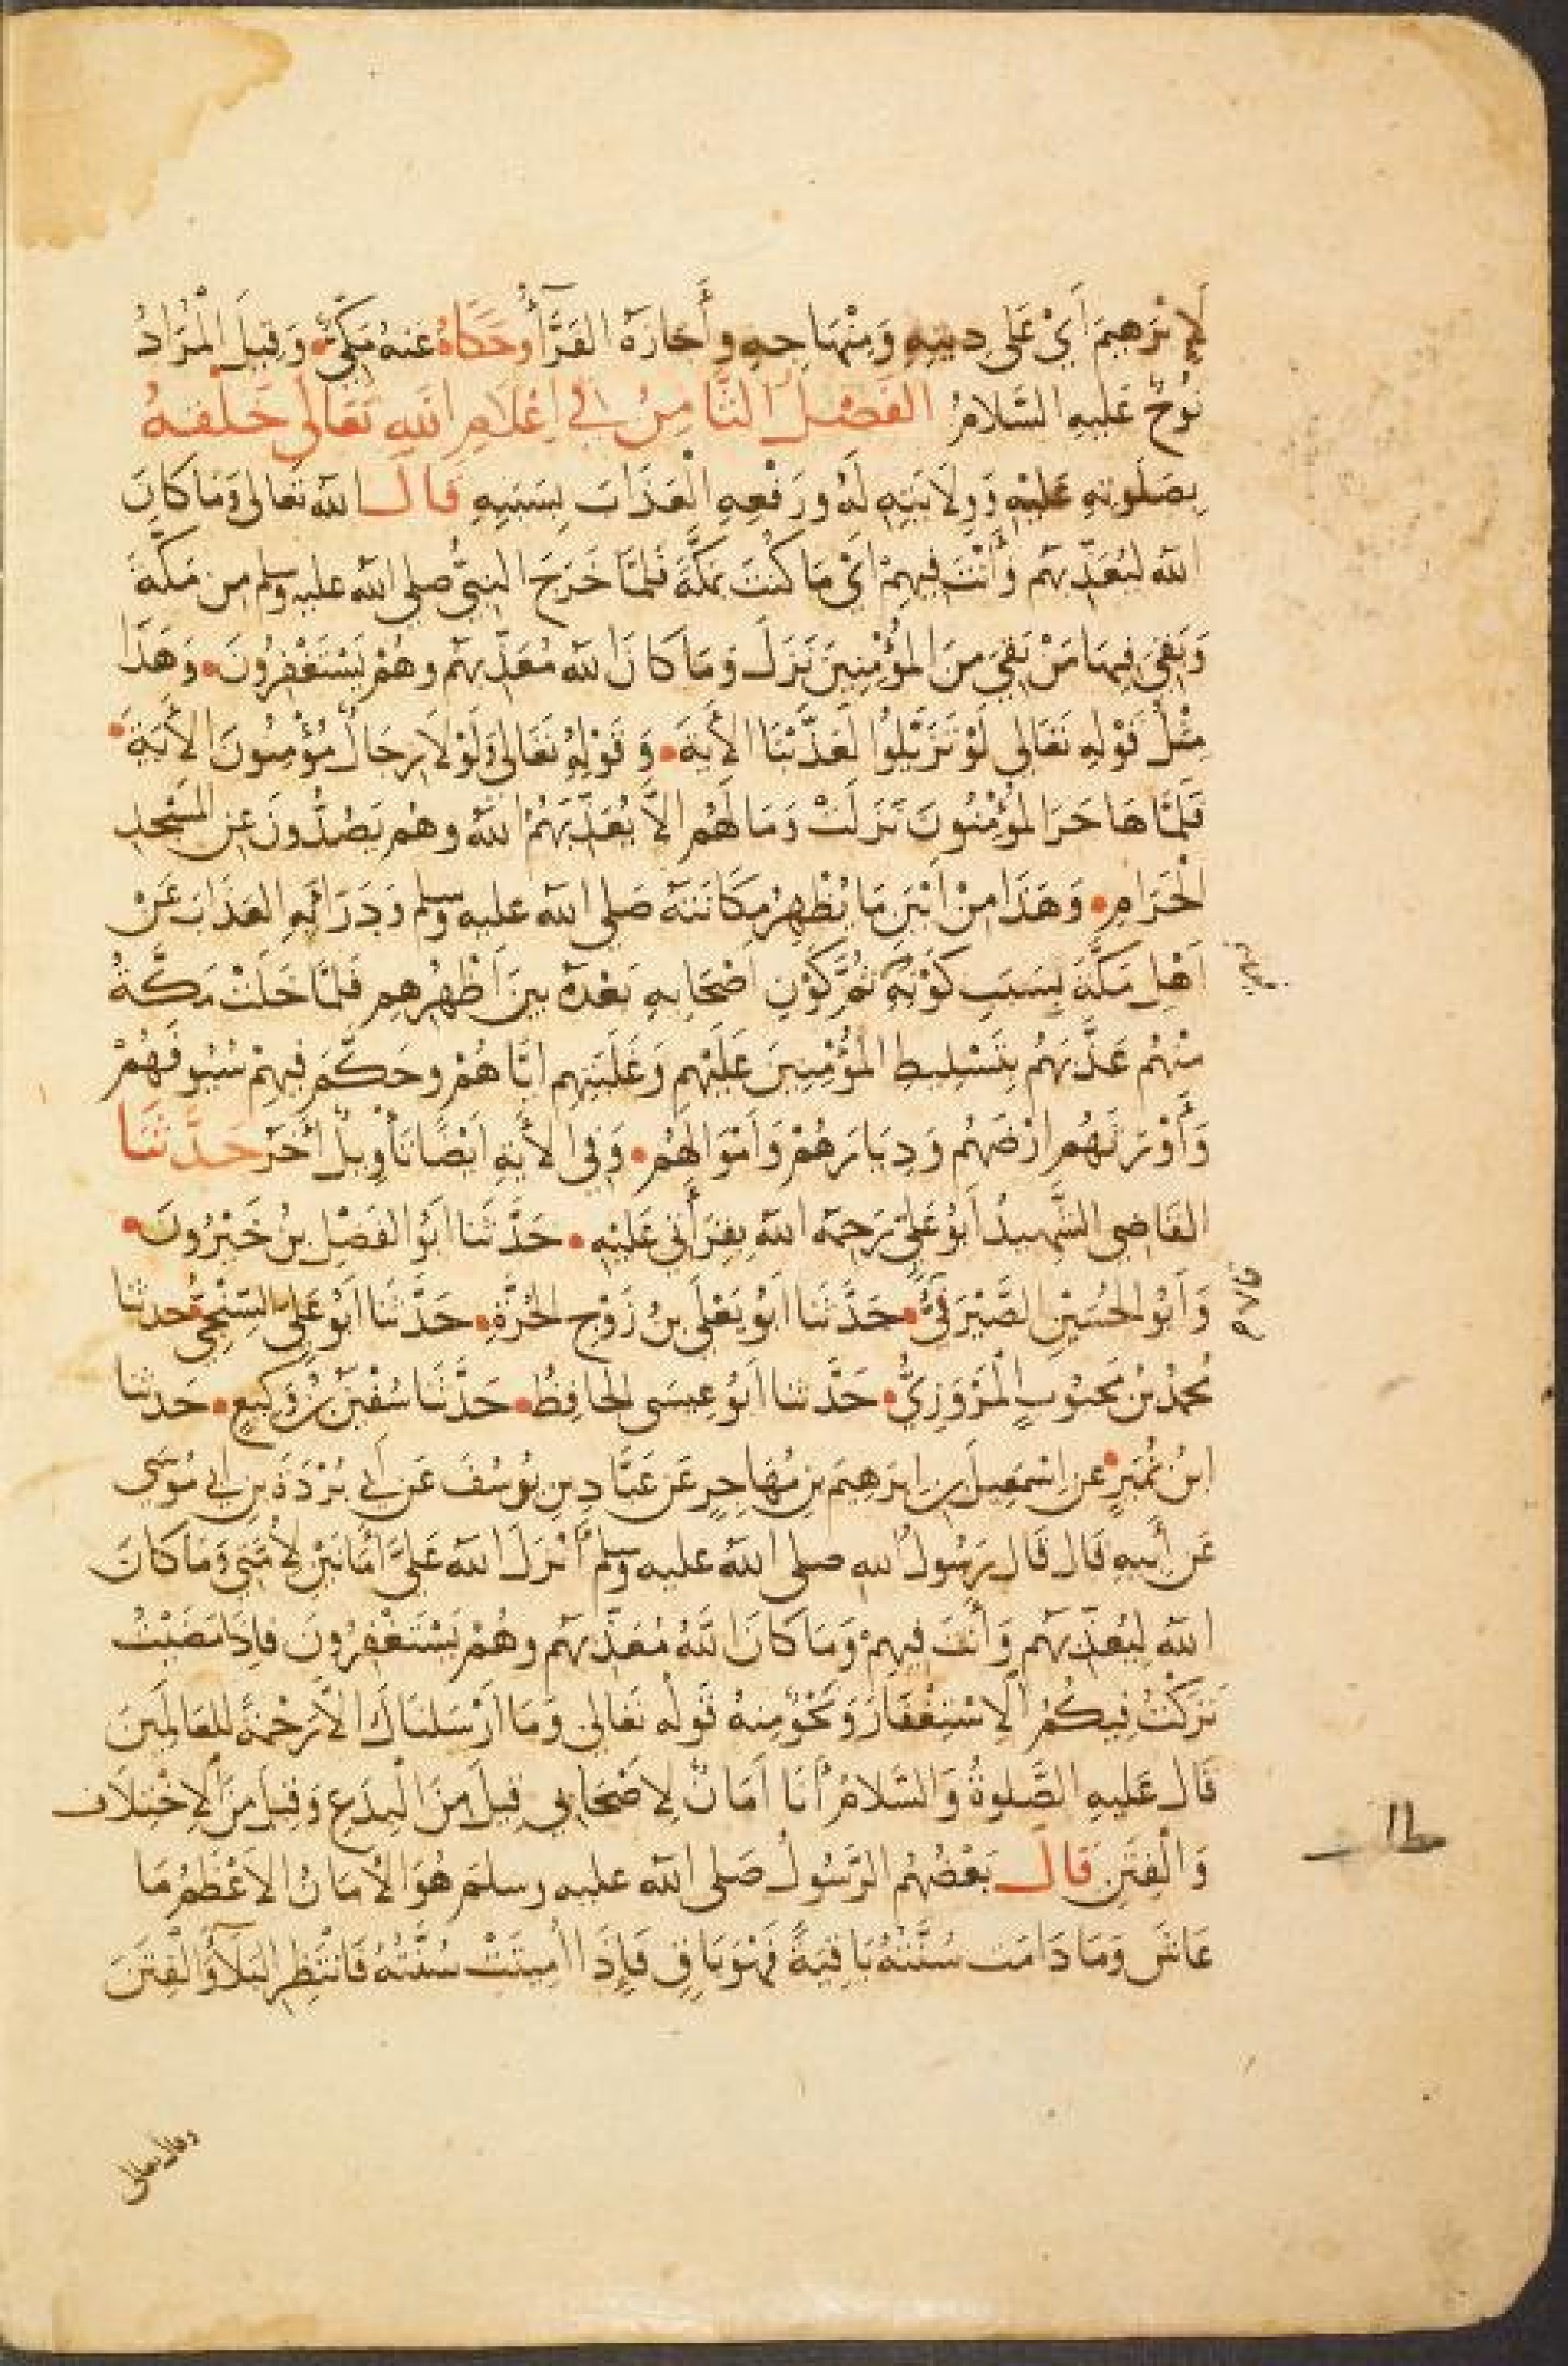 لَإِبْرٰهِيمَ أَيْ عَلَى دِينِهِ وَمِنْهَاجِهِ وأَجَازَهُ الفَرَّآءُ وَحَكَاهُ عَنهُ مَكِّيٌّ وَقِيلَ الْمُرَادُ
نُوحٌ عَلَيهِ السَّلَامُ الفَصْلُ الثَّامِنُ فِي إعْلَامِ اللهِ تَعَالَى خَلْقَهُ
بِصَلٰوتِهِ عَلَيْهِ وَوِلَايَتِهِ لَهُ وَرَفْعِهِ الْعَذَابَ بِسَبَبِهِ قَالَ اللهُ تَعَالى وَمَا كَانَ
اللهُ لِيُعَذِّبَهُم وَأَنْتَ فِيهِمْ أَيْ مَا كُنْتَ بِمَكَّةَ فَلَمَّا خَرَجَ النَّبِيُّ صلى الله عليه وسلم مِن مَكَّةَ
وَبَقِيَ فِيهَا مَنْ بَقِيَ مِنَ المُؤْمِنِينَ نَزَلَ وَمَا كَانَ اللهُ مُعَذِّبَهُم وَهُمْ يَسْتَغْفِرُونَ وَهَذَا
مِثْلُ قَوْلِهِ تَعَالى لَوْ تَزَيَّلُوا لَعَذَّبْنَا الأَيَةَ وَقَوْلِهِ تَعَالى وَلَوْلَا رِجَالٌ مُؤْمِنُونَ الأَيَةَ
فَلَمَّا هَاجَرَ المُؤْمِنُونَ نَزَلَتْ وَمَا لَهُم ألَّا يُعَذِّبَهُمُ اللهُ وَهُم يَصُدُّونَ عَنِ المَسْجِدِ
الْحَرَامِ وَهَذَا مِنْ أَبْيَنِ مَا يُظْهِرُ مَكَانَتَهُ صَلى الله عليه وسلم وَدَرَأَ بِهِ العَذَابَ عَنْ
أَهْلِ مَكَّةَ بِسَبَبِ كَوْنِهِ ثُمَّ كَوْنِ أَصْحَابِهِ بَعْدَهُ بَيْنَ أَظْهُرِهِم فَلَمَّا خَلَتْ مَكَّةُ
مِنْهُم عَذَّبَهُم بِتَسْلِيطِ المُؤْمِنِينَ عَلَيْهِم وَغَلَبَتِهِم إيَّاهُمْ وَحَكَّمَ فِيهِمْ سُيُوفَهُمْ
وَأَوْرَثَهُم أَرْضَهُم وَدِيَارَهُمْ وَأَمْوَالَهُم وَفِي الأَيَةِ أَيْضًا تَأْوِيلٌ آخَرُ حَدَّثَنَا
القَاضِي الشَّهِيدُ أَبُو عَلِيٍّ رَحِمَهُ اللهُ بِقِرَأَتِي عَلَيْهِ حَدَّثَنَا أَبُو الفَضْلِ بْنُ خَيْرُونَ
وَأَبُو الحُسَيْنِ الصَّيْرَفِيُّ حَدَّثَنَا أَبُو يَعْلَى بنُ زَوْجِ الحُرَّةِ حَدَّثَنَا أَبُو عَلِيٍّ السِّنْجِيُّ حدثنا
مُحَمَّدُ بْنُ مَحْبُوبٍ الْمَرْوَزِيُّ حَدَّثنا أَبُو عِيسَى الحَافِظُ حَدَّثَنَا سُفْيٰنُ بْنُ وَكِيعٍ حَدثنا
ابْنُ نُمَيْرٍ عَن إسْمٰعِيلَ بن إبرٰهِيمَ بْنِ مُهَاجِرٍ عَنْ عَبَّادِ بنِ يُوسُفَ عَن أَبِي بُرْدَةَ بنِ أَبِي مُوسَى
عَن أَبِيهِ قَالَ قَالَ رَسُولُ اللهِ صلى الله عليه وسلم أَنْزَلَ اللهُ عَلَيَّ أَمَانَيْنِ لِأُمَّتِي وَمَا كَانَ
اللهُ لِيُعَذِّبَهُم وَأَنْتَ فِيهِمْ وَمَا كَانَ اللهُ مُعَذِّبَهُم وَهُمْ يَسْتَغْفِرُونَ فَإِذَا مَضَيْتُ
تَرَكْتُ فِيكُمُ الِاسْتِغْفَارَ وَنَحْوٌ مِنهُ قَوْلُه تَعَالى وَمَا أَرْسَلنَاكَ إلَّا رَحْمَةً لِلعَالَمِينَ
قَالَ عَلَيهِ الصَّلوةُ وَالسَّلامُ أَنَا أَمَانٌ لِأَصْحَابِي قِيلَ مِنَ الْبِدَعِ وَقِيلَ مِنَ الِاخْتِلَافِ
وَالْفِتَنِ قَالَ بَعْضُهُم الرَّسُولُ صَلى الله عليه وسلم هُوَ الْأَمَانُ الأَعْظَمُ مَا
عَاشَ وَمَا دَامَت سُنَّتُهُ بَاقِيَةً فَهُوَ بَاقٍ فَإِذَا أُمِيتَتْ سُنَّتُهُ فَانْتَظِرِ البَلَآءَ وَالْفِتَنَ
وقال تعالى